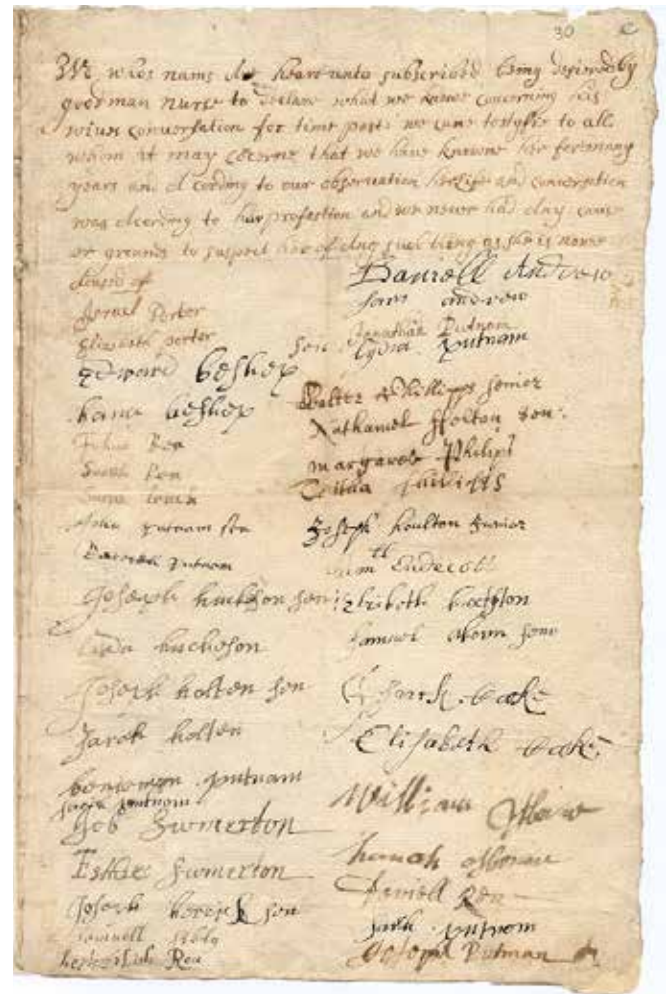 30
We whos nams Are heareunto subscribed being desiered by
goodman Nurse to declare what we knowe concerning his
wives conversation for time past: we cane testyfie to all
whom it may concerne that we have knowne her for many
years and Acording to our observation her life and conversation
was Acording to hur profestion and we never had Any cause
or grounds to suspect her of Any such thing as she is nowe
Acused of
Israel Porter
Elizabeth porter
Edward beshep
hana beshep
Sarah Rea
John putnam sen
Rebecah putnam
Joseph huchson sen:
Lida huchoson
Joseph holten sen
Sarah holten
benjaman putnam
Sarah putnam
Job Swinerton
Esther Swinerton
Joseph herrick sen
Daniell Andrew
Sara andrew
Jonathan Putnam
Lydia putnam
Walter Phillipps senior
Nathaniel Felton Sen:
margaret Philips
Tabitha phillipps
Joseph houlton Junior
Samuel Endecott
Elisabeth buxston
Samuel aborn senr
Isaack Cooke
Elisabeth Cooke
William Osborne
hanah osborne
Daniell Rea
Sarah putnam
Joseph Putman